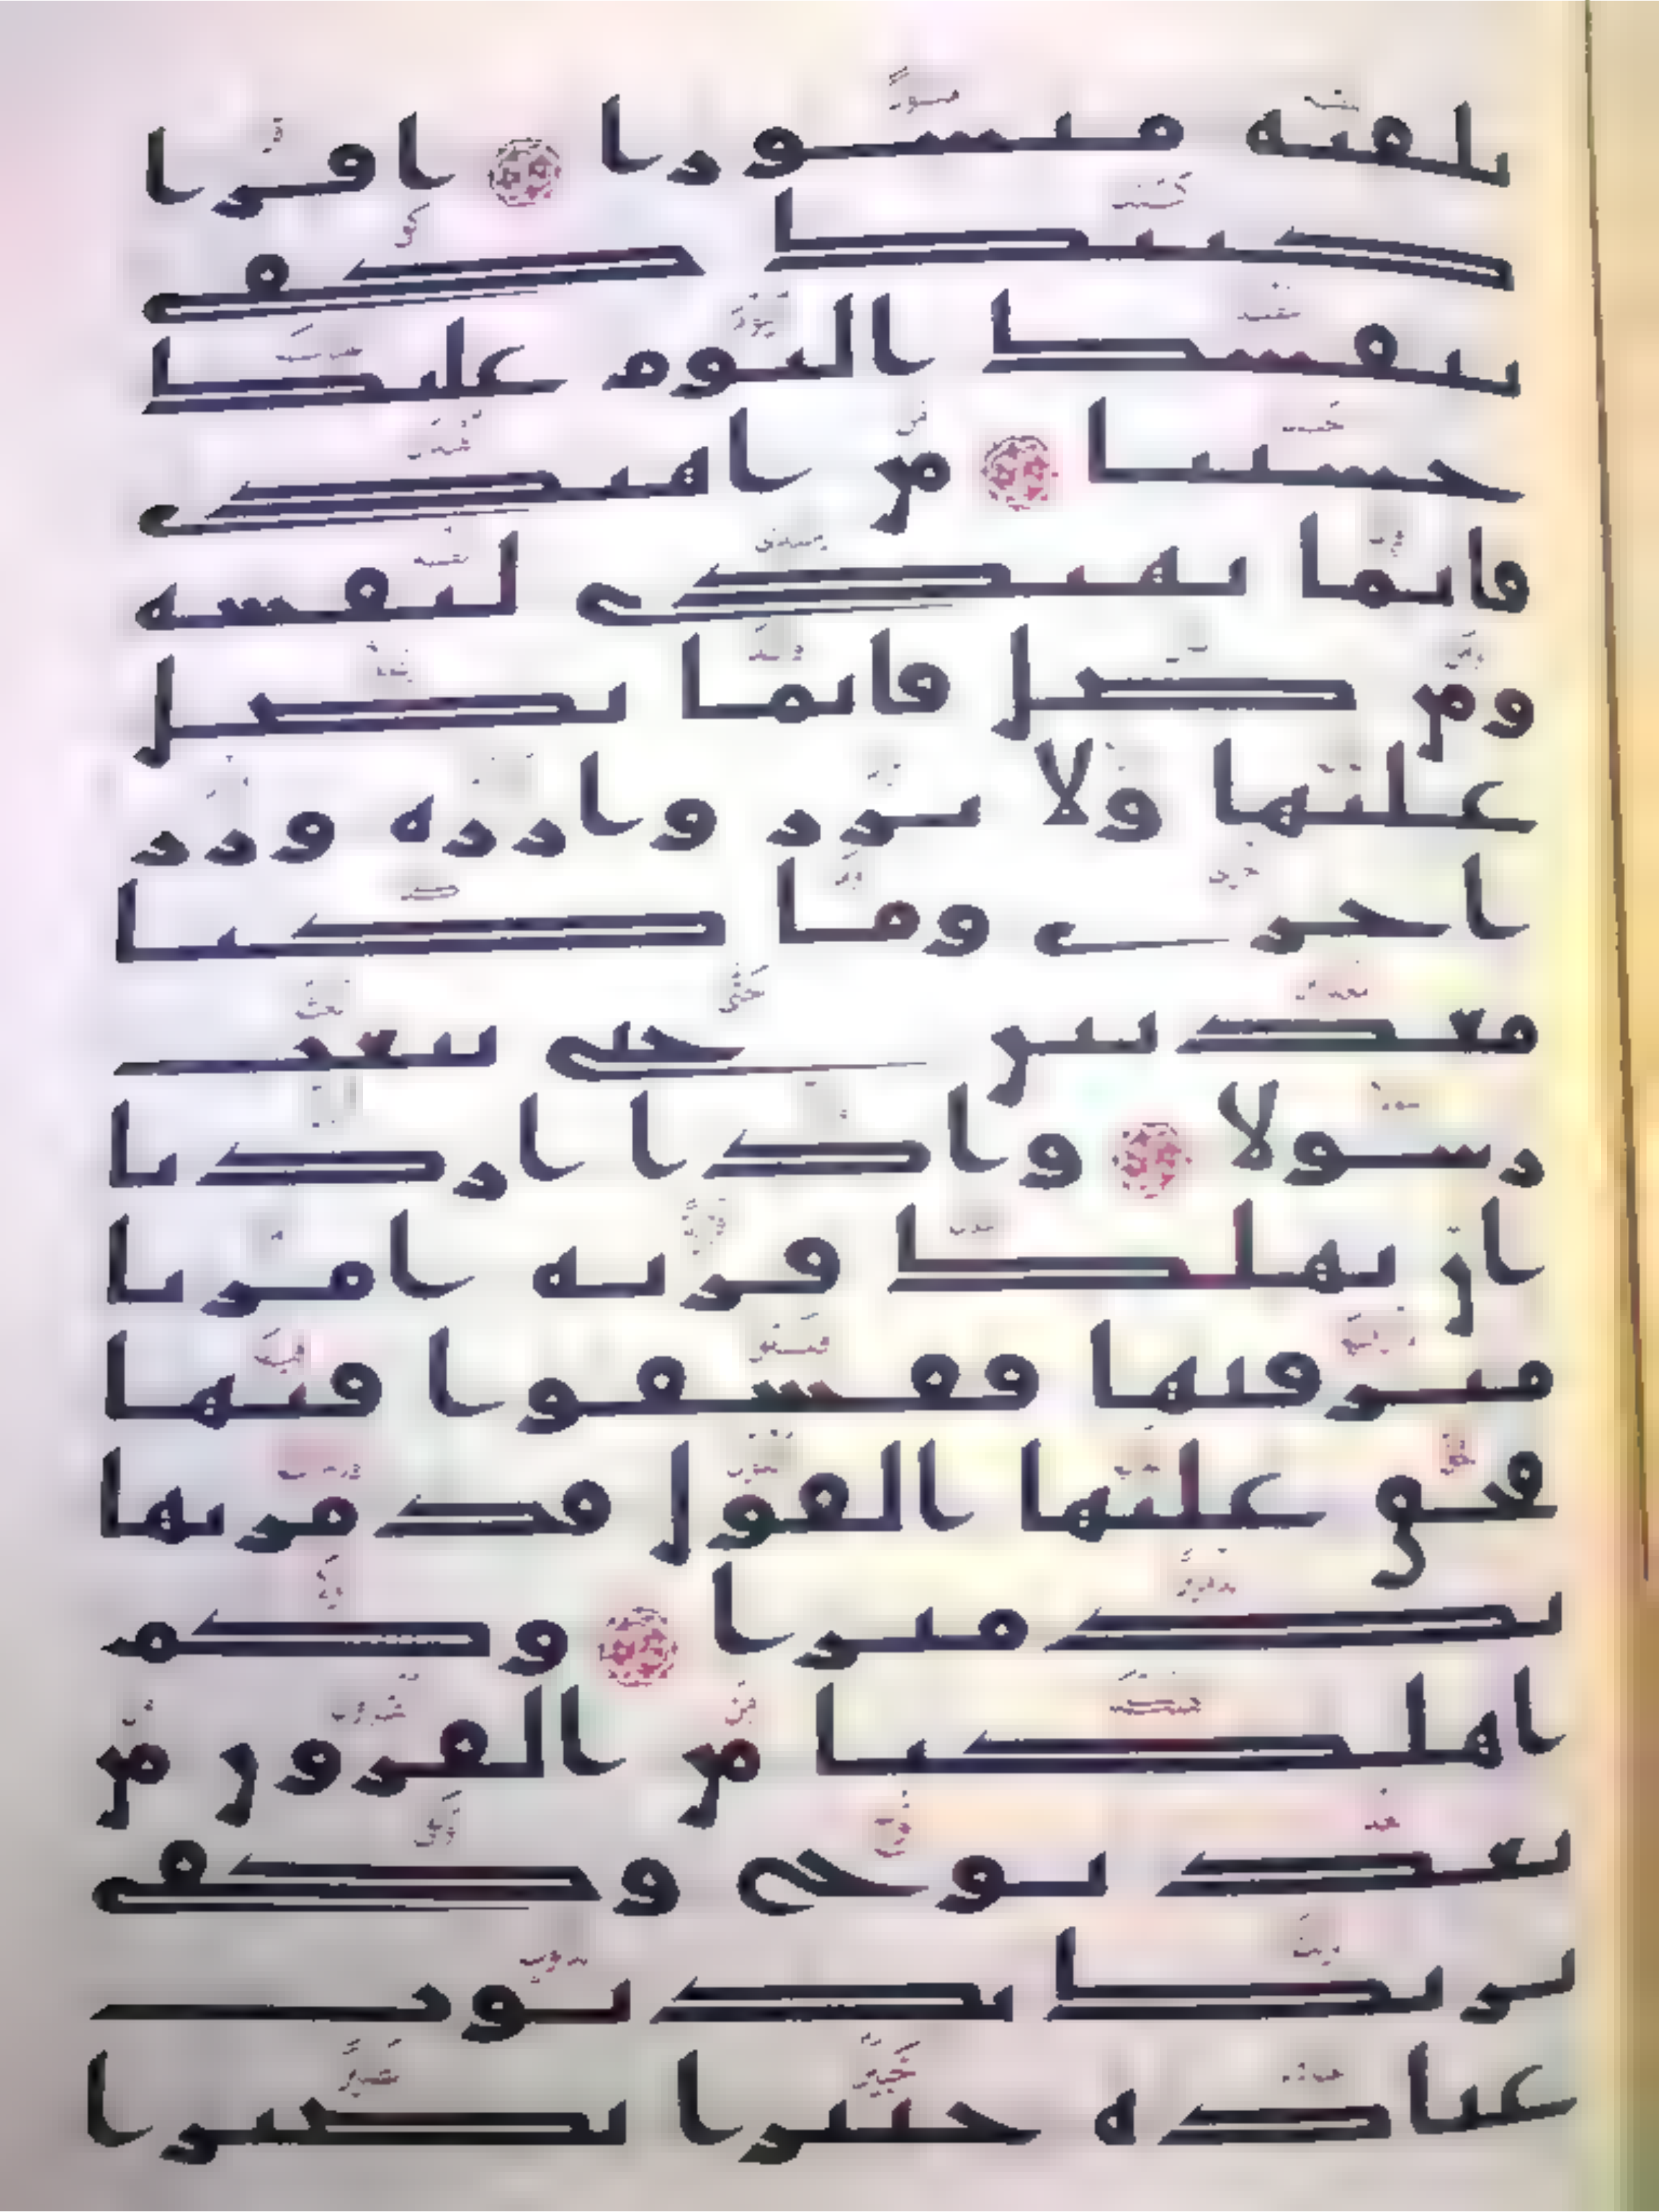 يلقيه منشورا
اقرا كتبك كفى
بنفسك اليوم عليك
حسيبا من اهتدى
فانما يهتدى لنفسه
ومن ضل فانما يضل
عليها ولا تزر وازره وزر
اخرى وما كنا
معذبين حتى نبعث
رسولا واذا اردنا
ان نهلك قريه امرنا
مترفيها ففسقوا فيها
فحق عليها القول فدمرنها
تدميرا وكم
اهلكنا من القرون من
بعد نوح وكفى
بربك بذنوب
عباده خبيرا بصيرا